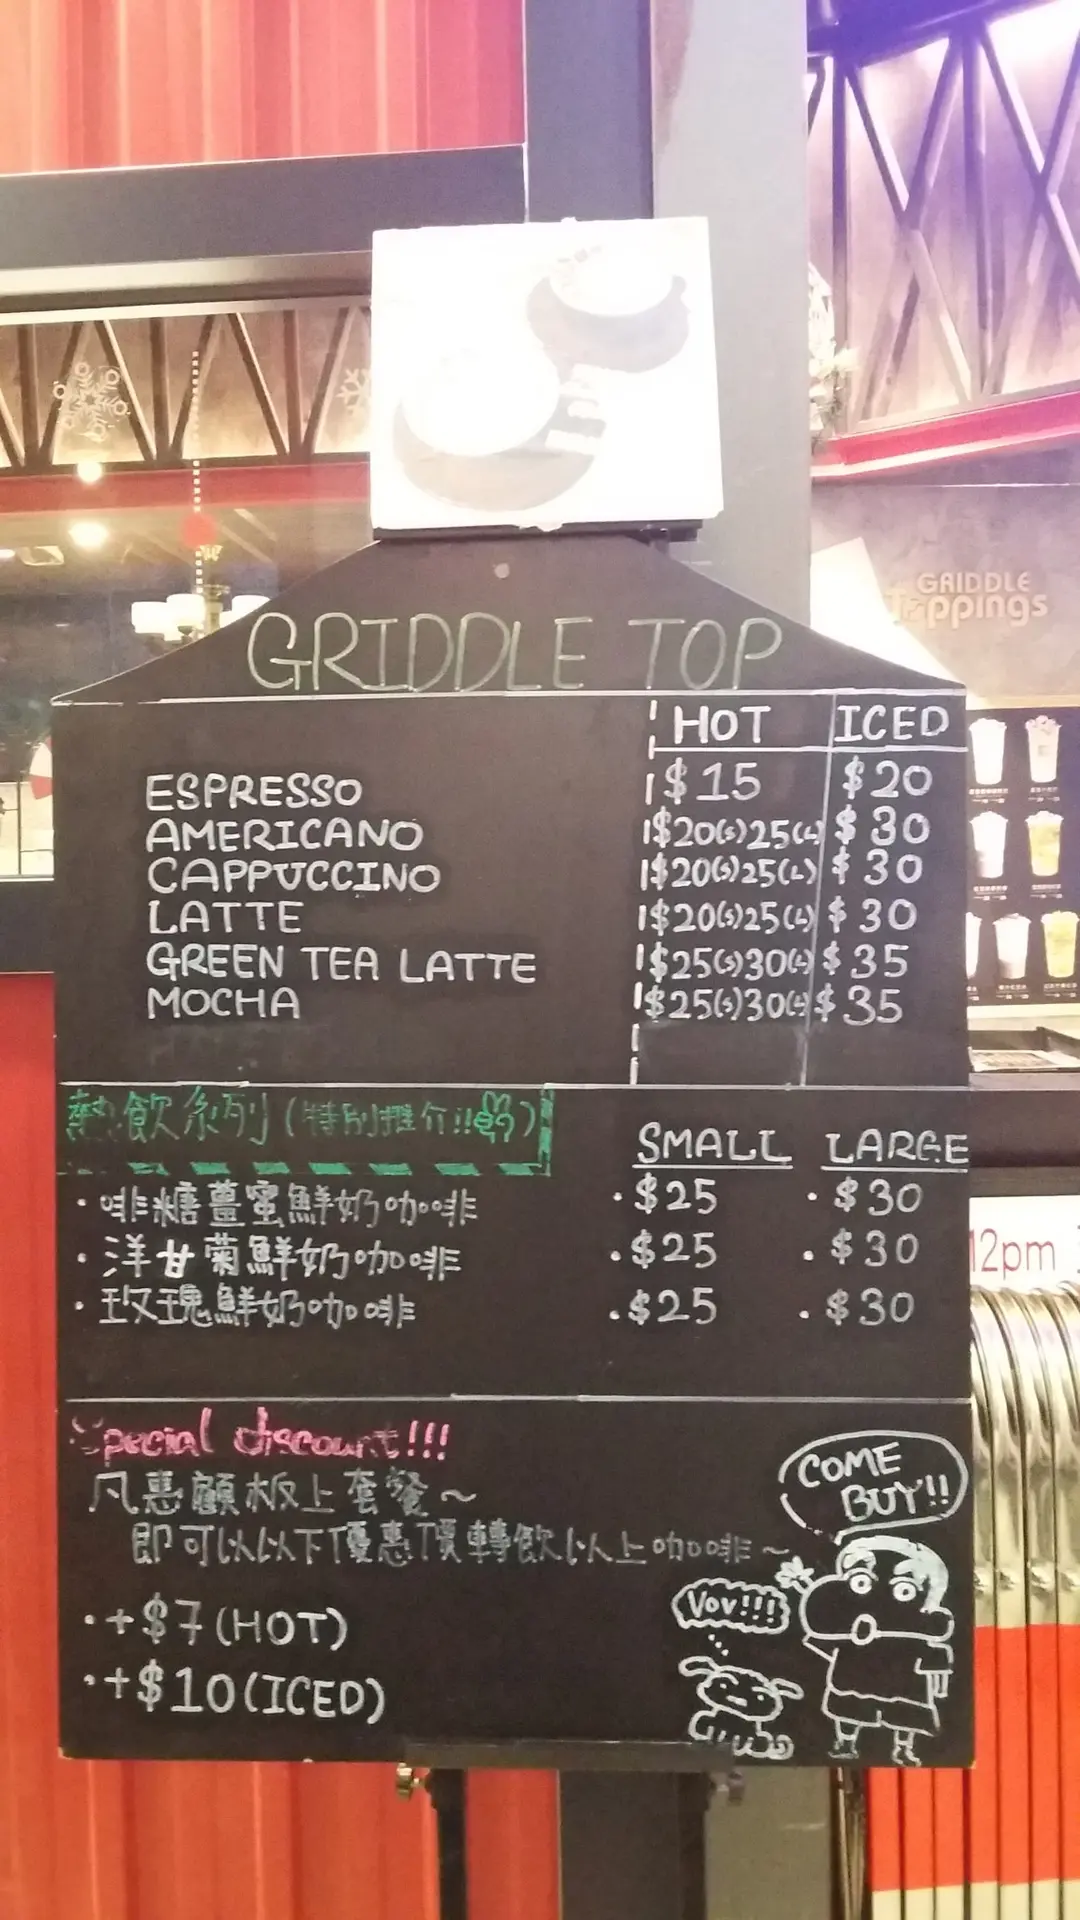 GRIDDLE
Toppings
GRIDDLE TOP
HOT ICED
ESPRESSO $15 $20
AMERICANO $20(S)25(L) $30
CAPPUCCINO $20(S)25(L) $30
LATTE $20(S)25(L) $30
GREEN TEA LATTE $25(S)30(L) $35
MOCHA $25(S)30(L) $35
熱飲系列(特別推介!!)
SMALL LARGE
·啡糖薑蜜鮮奶咖啡 ·$25 ·$30
·洋甘菊鮮奶咖啡 ·$25 ·$30
·玫瑰鮮奶咖啡 ·$25 ·$30
12pm
Special discount!!!
凡惠顧板上套餐~
即可以以下優惠價轉飲以上咖啡~
·+$7(HOT)
·+$10(ICED)
COME
BUY!!
Vov!!!